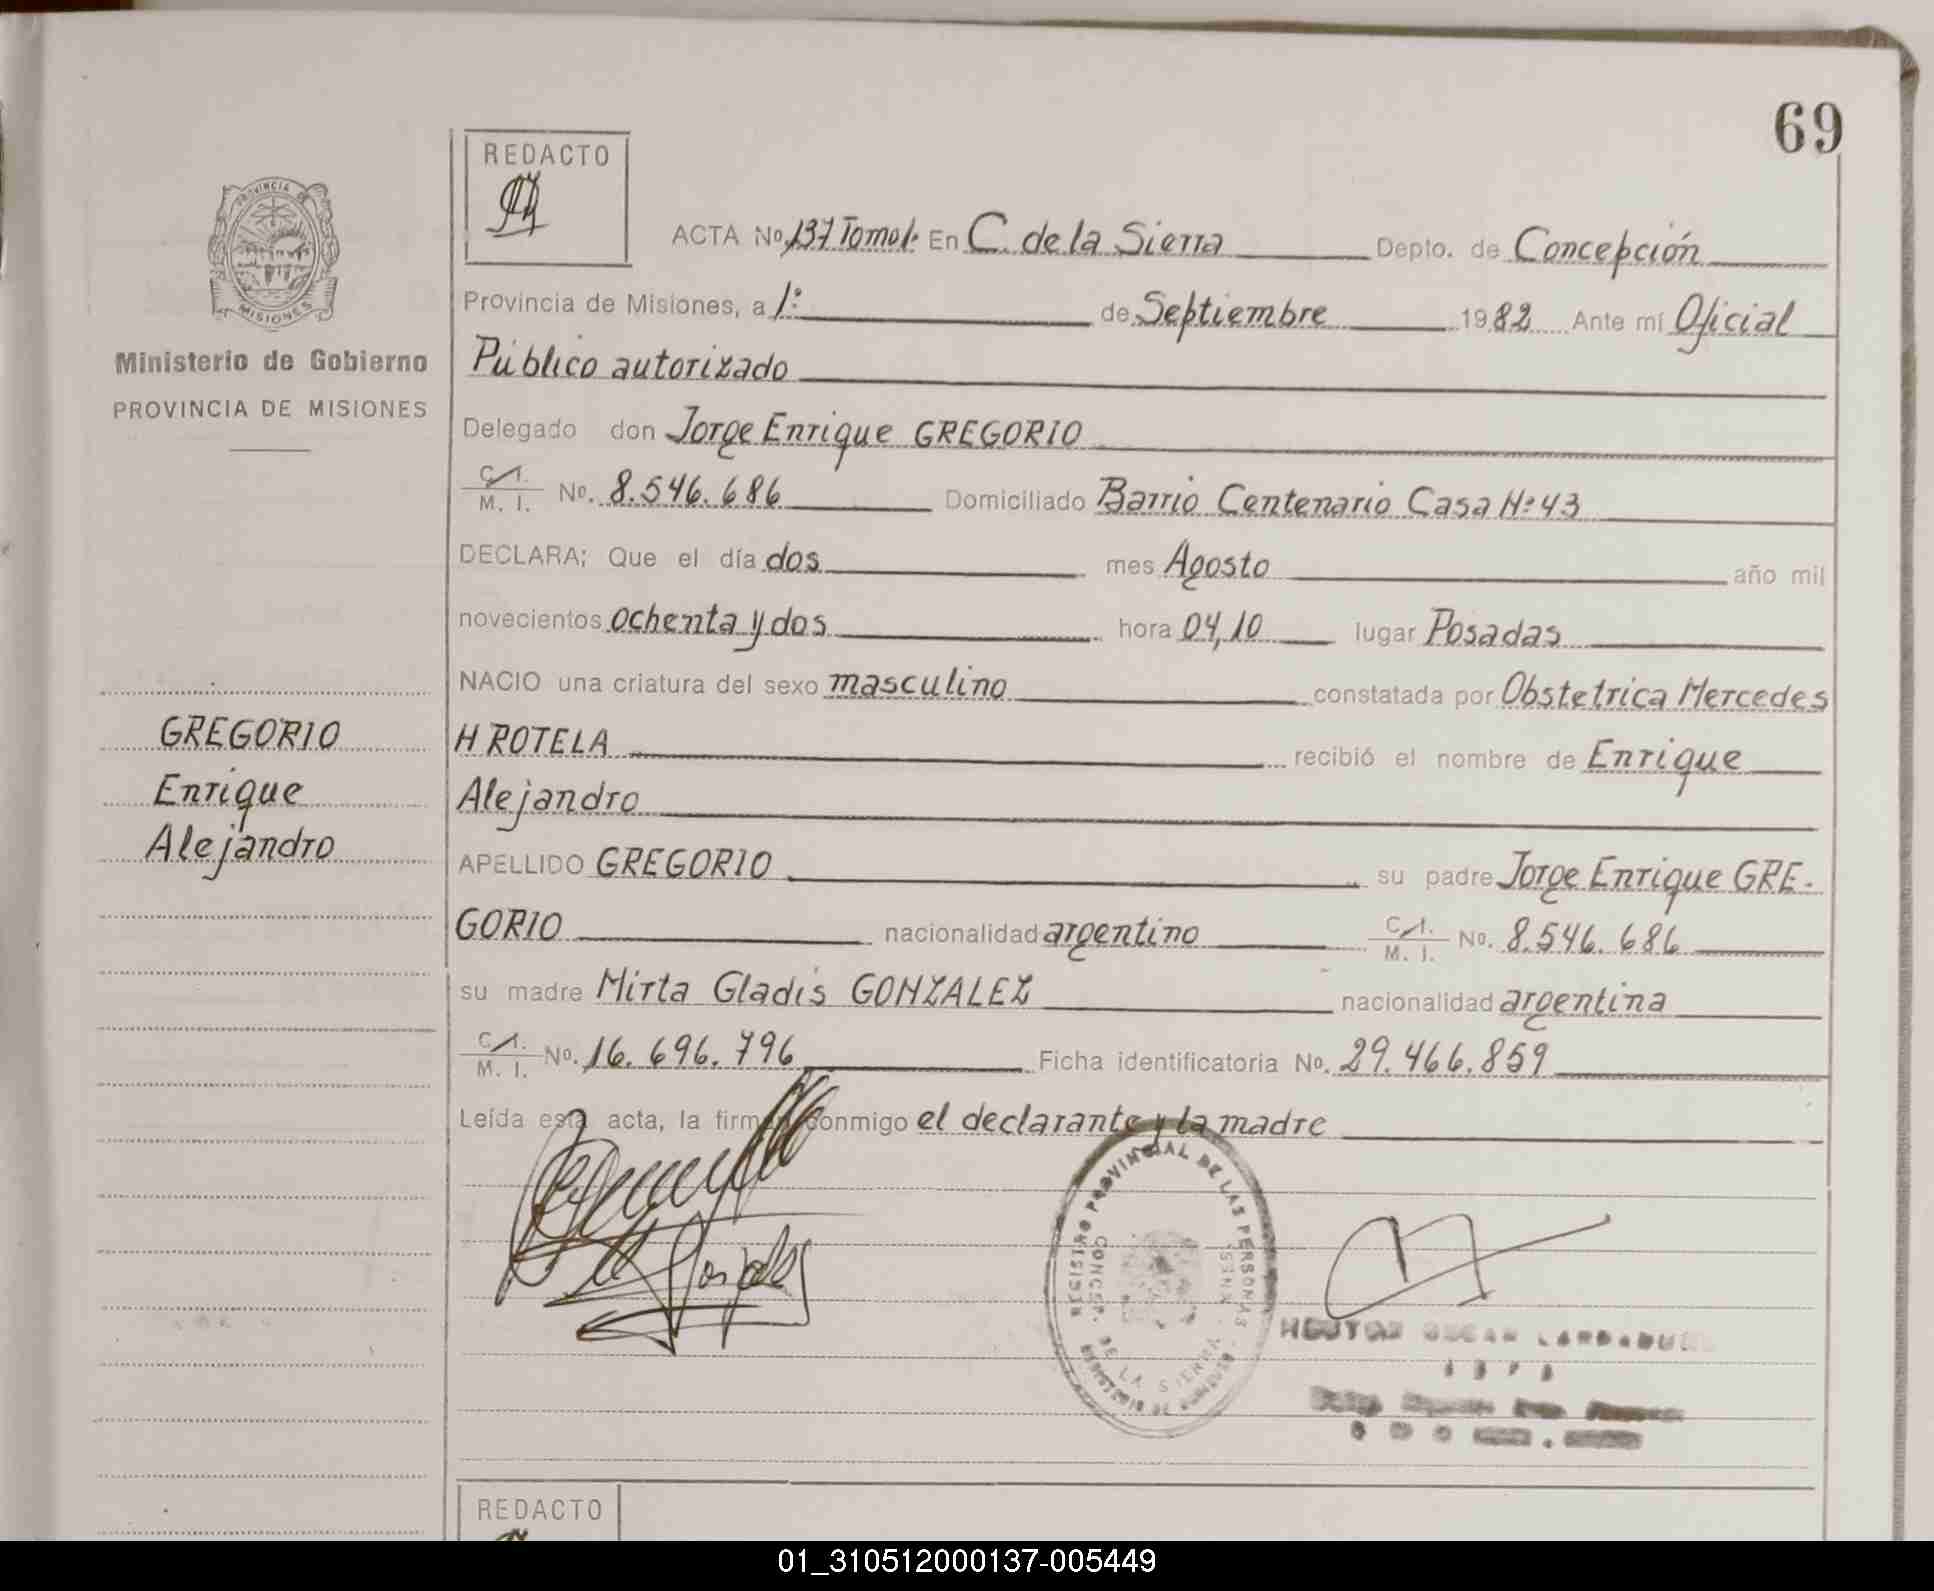 69
REDACTO
ACTA No. 137 Tomo 1: En C. de la Sierra Depto. de Concepción
Provincia de Misiones, a 1º de Septiembre 1982 Ante mí Oficial
Público autorizado
Delegado don Jorge Enrique GREGORIO
C. I.
M. I. No. 8.546.686 Domiciliado Barrio Centenario Casa Nº 43
DECLARA; Que el día dos mes Agosto año mil
novecientos ochenta y dos hora 04,10 lugar Posadas
NACIO una criatura del sexo masculino constatada por Obstetrica Mercedes
H ROTELA recibió el nombre de Enrique
Alejandro
APELLIDO GREGORIO su padre Jorge Enrique GRE-
GORIO nacionalidad argentino C. I. M. I. No. 8.546.686
su madre Mirta Gladis GONZALEZ nacionalidad argentina
C. I.
M. I. No. 16.696.796 Ficha identificatoria No. 29.466.859
Leída esta acta, la firman conmigo el declarante y la madre
PROVINCIA DE
MISIONES
Ministerio de Gobierno
PROVINCIA DE MISIONES
GREGORIO
Enrique
Alejandro
REGISTRO PROVINCIAL DE LAS PERSONAS
CONCEP. DE LA SIERRA
MISIONES
REDACTO
01_310512000137-005449